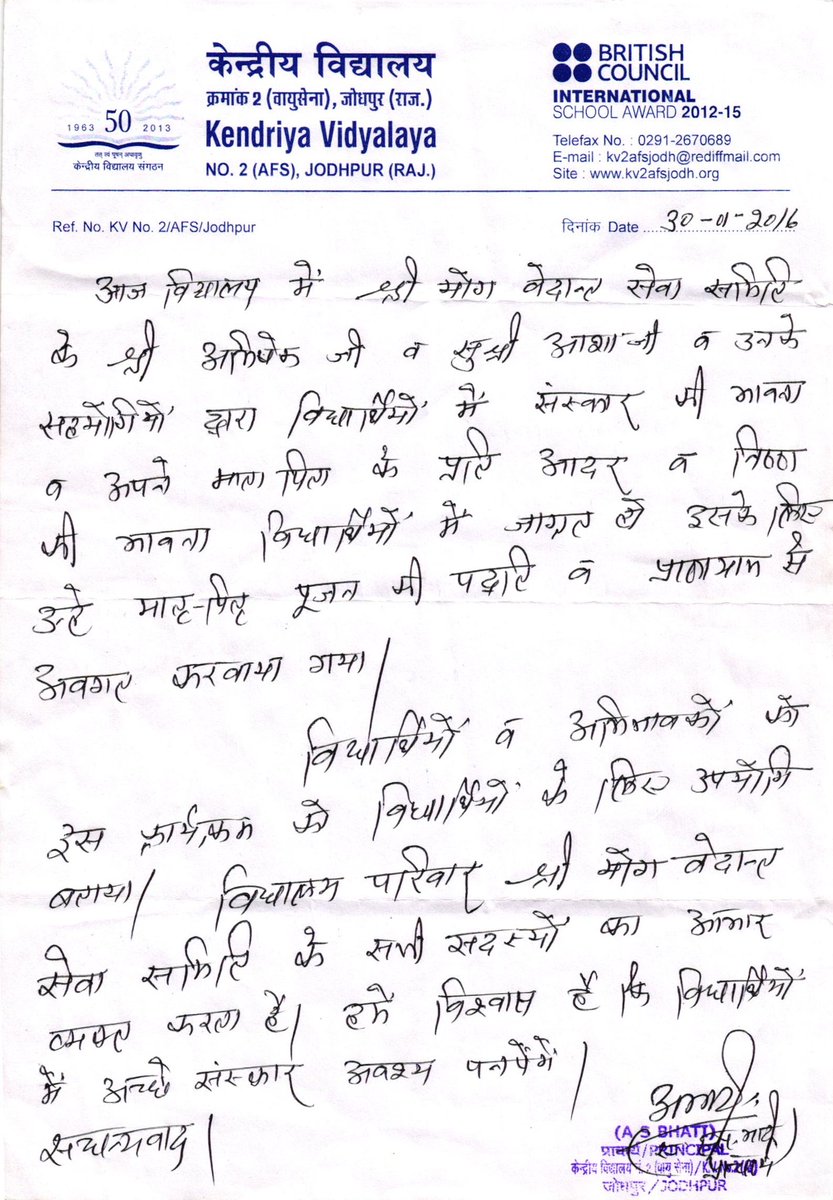 1963 50 2013
तत् त्वं पूषन् अपावृणु
केन्द्रीय विद्यालय संगठन
केन्द्रीय विद्यालय
क्रमांक 2 (वायुसेना), जोधपुर (राज.)
Kendriya Vidyalaya
NO. 2 (AFS), JODHPUR (RAJ.)
BRITISH
COUNCIL
INTERNATIONAL
SCHOOL AWARD 2012-15
Telefax No. : 0291-2670689
E-mail : kv2afsjodh@rediffmail.com
Site : www.kv2afsjodh.org
Ref. No. KV No. 2/AFS/Jodhpur
दिनांक Date 30-01-2016
आज विद्यालय में श्री योग वेदान्त सेवा समिति
के श्री अभिषेक जी व सुश्री आशा जी व उनके
सहयोगियों द्वारा विद्यार्थियों में संस्कार की भावना
व अपने माता पिता के प्रति आदर व निष्ठा
की भावना विद्यार्थियों में जागृत हो इसके लिए
उन्हे मातृ-पितृ पूजन की पद्धति व प्राणायाम से
अवगत करवाया गया।
विद्यार्थियों व अभिभावकों को
इस कार्यक्रम को विद्यार्थियों के लिए उपयोगि
बताया। विद्यालय परिवार श्री योग वेदान्त
सेवा समिति के सभी सदस्यों का आभार
व्यक्त करता है। हमें विश्वास है कि विद्यार्थियों
में अच्छे संस्कार अवश्य पनपेंगें।
सधन्यवाद।
(A S BHATI)
प्राचार्य/PRINCIPAL
केन्द्रीय विद्यालय नं. 2 (वायु सेना)/K.V. No.2(AF)
जोधपुर/JODHPUR